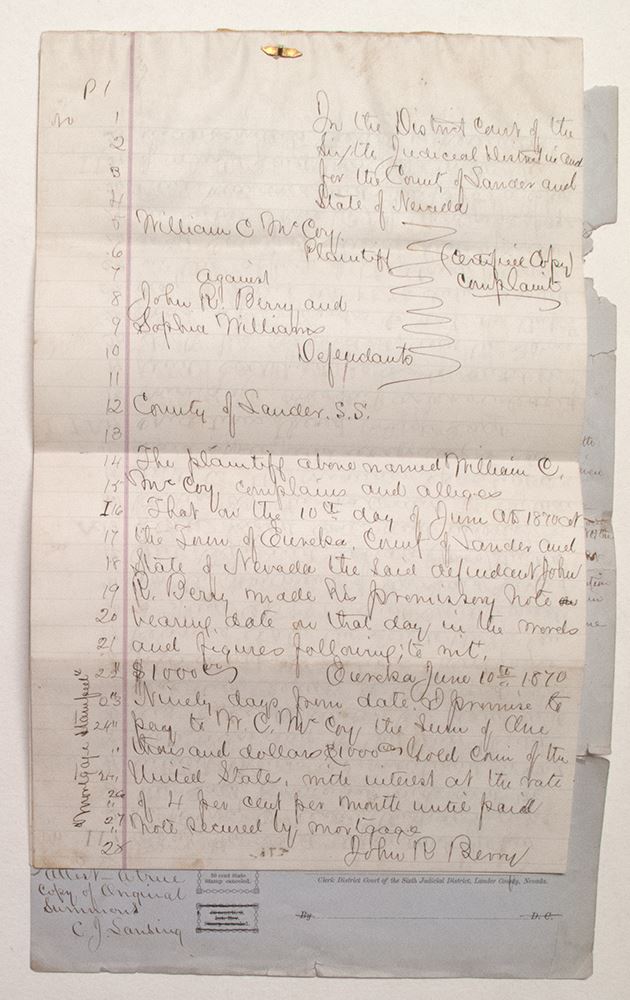 P 1
No 1 In the District Court of the
2 Sixth Judicial District in and
3 for the County of Lander and
4 State of Nevada
5 William C McCoy
6 Plaintiff (Certified Copy)
7 against Complaint
8 John R. Berry and
9 Sophia Williams
10 Defendants
11
12 County of Lander. S.S.
13
14 The plaintiff above named William C.
15 McCoy complains and alleges
I 16 That on the 10th day of June AD 1870 at
17 the Town of Eureka, County of Lander and
18 State of Nevada the said defendant John
19 R. Berry made his promissory note
20 bearing date on that day in the words
21 and figures following; to wit,
22 " $1000 00 Eureka June 10th 1870
23 Ninety days from date I promise to
24 " pay to W. C. McCoy the sum of One
" thousand dollars $1000 00 Gold Coin of the
United State, with interest at the rate
26 of 4 per cent per month until paid
27 Note secured by mortgage
28 John R Berry
"Mortgage Stamped"
Attest a true
Copy of Original
Summons
C. J. Lansing
50 cent State
stamp canceled.
Clerk District Court of the Sixth Judicial District, Lander County, Nevada.
By D. C.